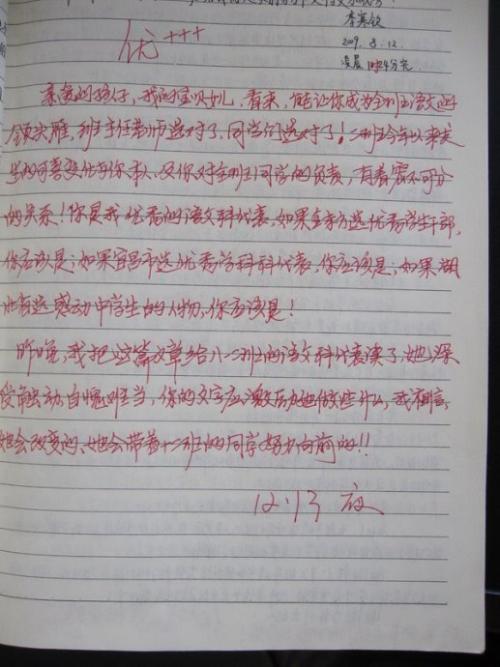 李寒敏
2009. 8. 12.
凌晨1时24分完
优+++
亲爱的孩子，我的宝贝女儿，看来，能让你成为全班语文的
领头雁，班主任老师选对了，同学们选对了！二班今年以来发
生的可喜变化与你本人、及你对全班同学的负责，有着密不可分
的关系！你是我优秀的语文科代表，如果全校选优秀学生干部，
你应该是；如果宜昌市选优秀学科科代表，你应该是；如果湖
北省选感动中学生的人物，你应该是！
昨晚，我把这篇文章给八二班的语文科代表读了，她深
受触动，自愧难当，你的文字应激励她做些什么，我相信，
她会改变的，她会带着十二班的同学努力向前的!!
12.13 夜